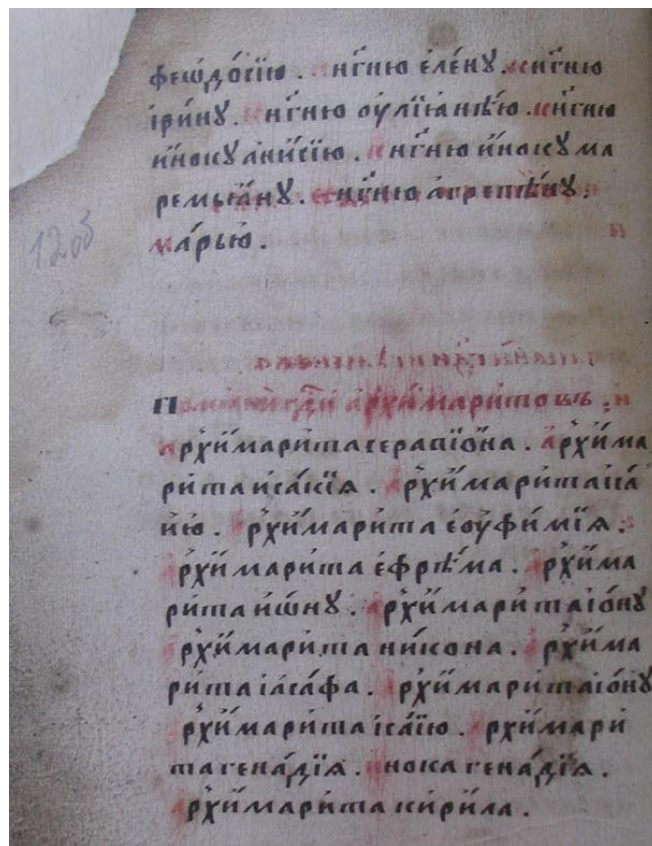 феѡдо́сїю. кнг҃ню еле́нꙋ. кнг҃ню
ірѝнꙋ. кнг҃ню оу҆лїанѣ́ю. кнг҃ню
и́нокꙋ ани́сїю. кнг҃ню и́нокꙋ ма
ремья́нꙋ. кнг҃ню агрепѣ́нꙋ.
ма́рью.
12 об
помѧни гд҇и архи́маритовъ. и
архи́марита серапїо́на. архи́ма
ри́та иса́кїѧ. архи́мари́та іса́
и́ю. архи́мари́та еѵфи́мїѧ.
архи́мари́та ефрѣ́ма. архи́ма
ри́та и́ѡнꙋ. архи́мари́та іо́нꙋ
архи́мари́та ни́кона. архи́ма
ри́та іаса́фа. архи́мари́та іо́нꙋ
архи́мари́та іса́їю. архи́мари́
та гена́дїѧ. инока гена́дїѧ.
архи́мари́та кири́ла.